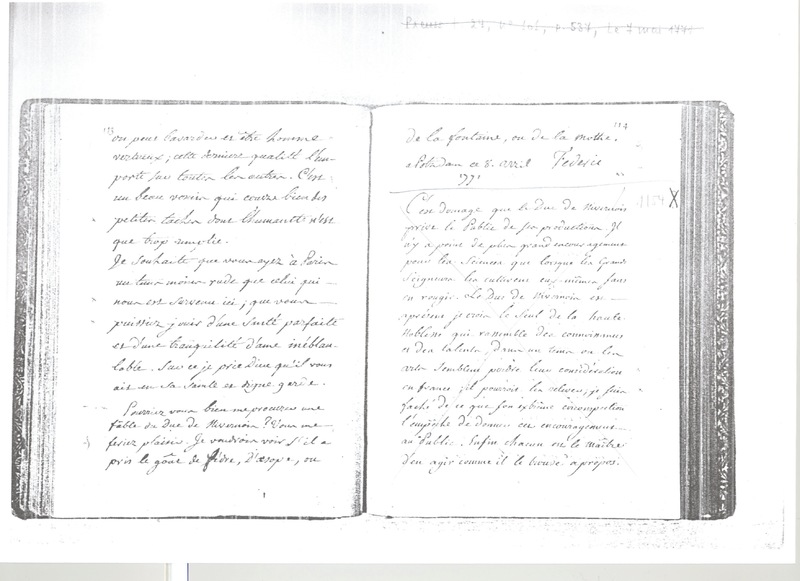 24, p. 537, le 7 mai 1771
113
ou peux bavarder et être homme
vertueux; cette derniere qualité l'em-
porte sur toutes les autres. C'est
un beau vernin qui couvre bien des
petites taches dont l'humanité n'est
que trop
Je souhaite que vous ayez à Paris
un tems moins rude que celui qui
nous est survenu ici; que vous
puissiez jouir d'une santé parfaite
et d'une tranquilité d'ame inébran-
lable. Sur ce je prie Dieu qu'il vous
ait en sa sainte et digne garde.
Pourriez vous bien me procurer une
fable du Duc de Nivernois? Vous me
feriez plaisir. Je voudrois voir s'il a
pris le goût de Fédre, d'Esope, ou
114
de la fontaine, ou de la mothe.
a Potzdam ce 8. avril Féderic
1771
C'est domage que le Duc de Nivernois
prive le Public de ses productions. Il
n'y a point de plus grand encouragement
pour les Sciences que lorsque les Grands
Seigneurs les cultivent eux mêmes sans
en rougir. Le Duc de Nivernois est
apresent je crois le seul de la haute
Noblesse qui rassemble des connoissances
et des talents; dans un tems ou les
arts semblent perdre leur considération
en France; il pourroit les relever, je suis
faché de ce que son extrême circonspection
l'empêche de donner cet encouragement
au Public. Enfin chacun est le maitre
d'en agir comme il le trouve apropos.